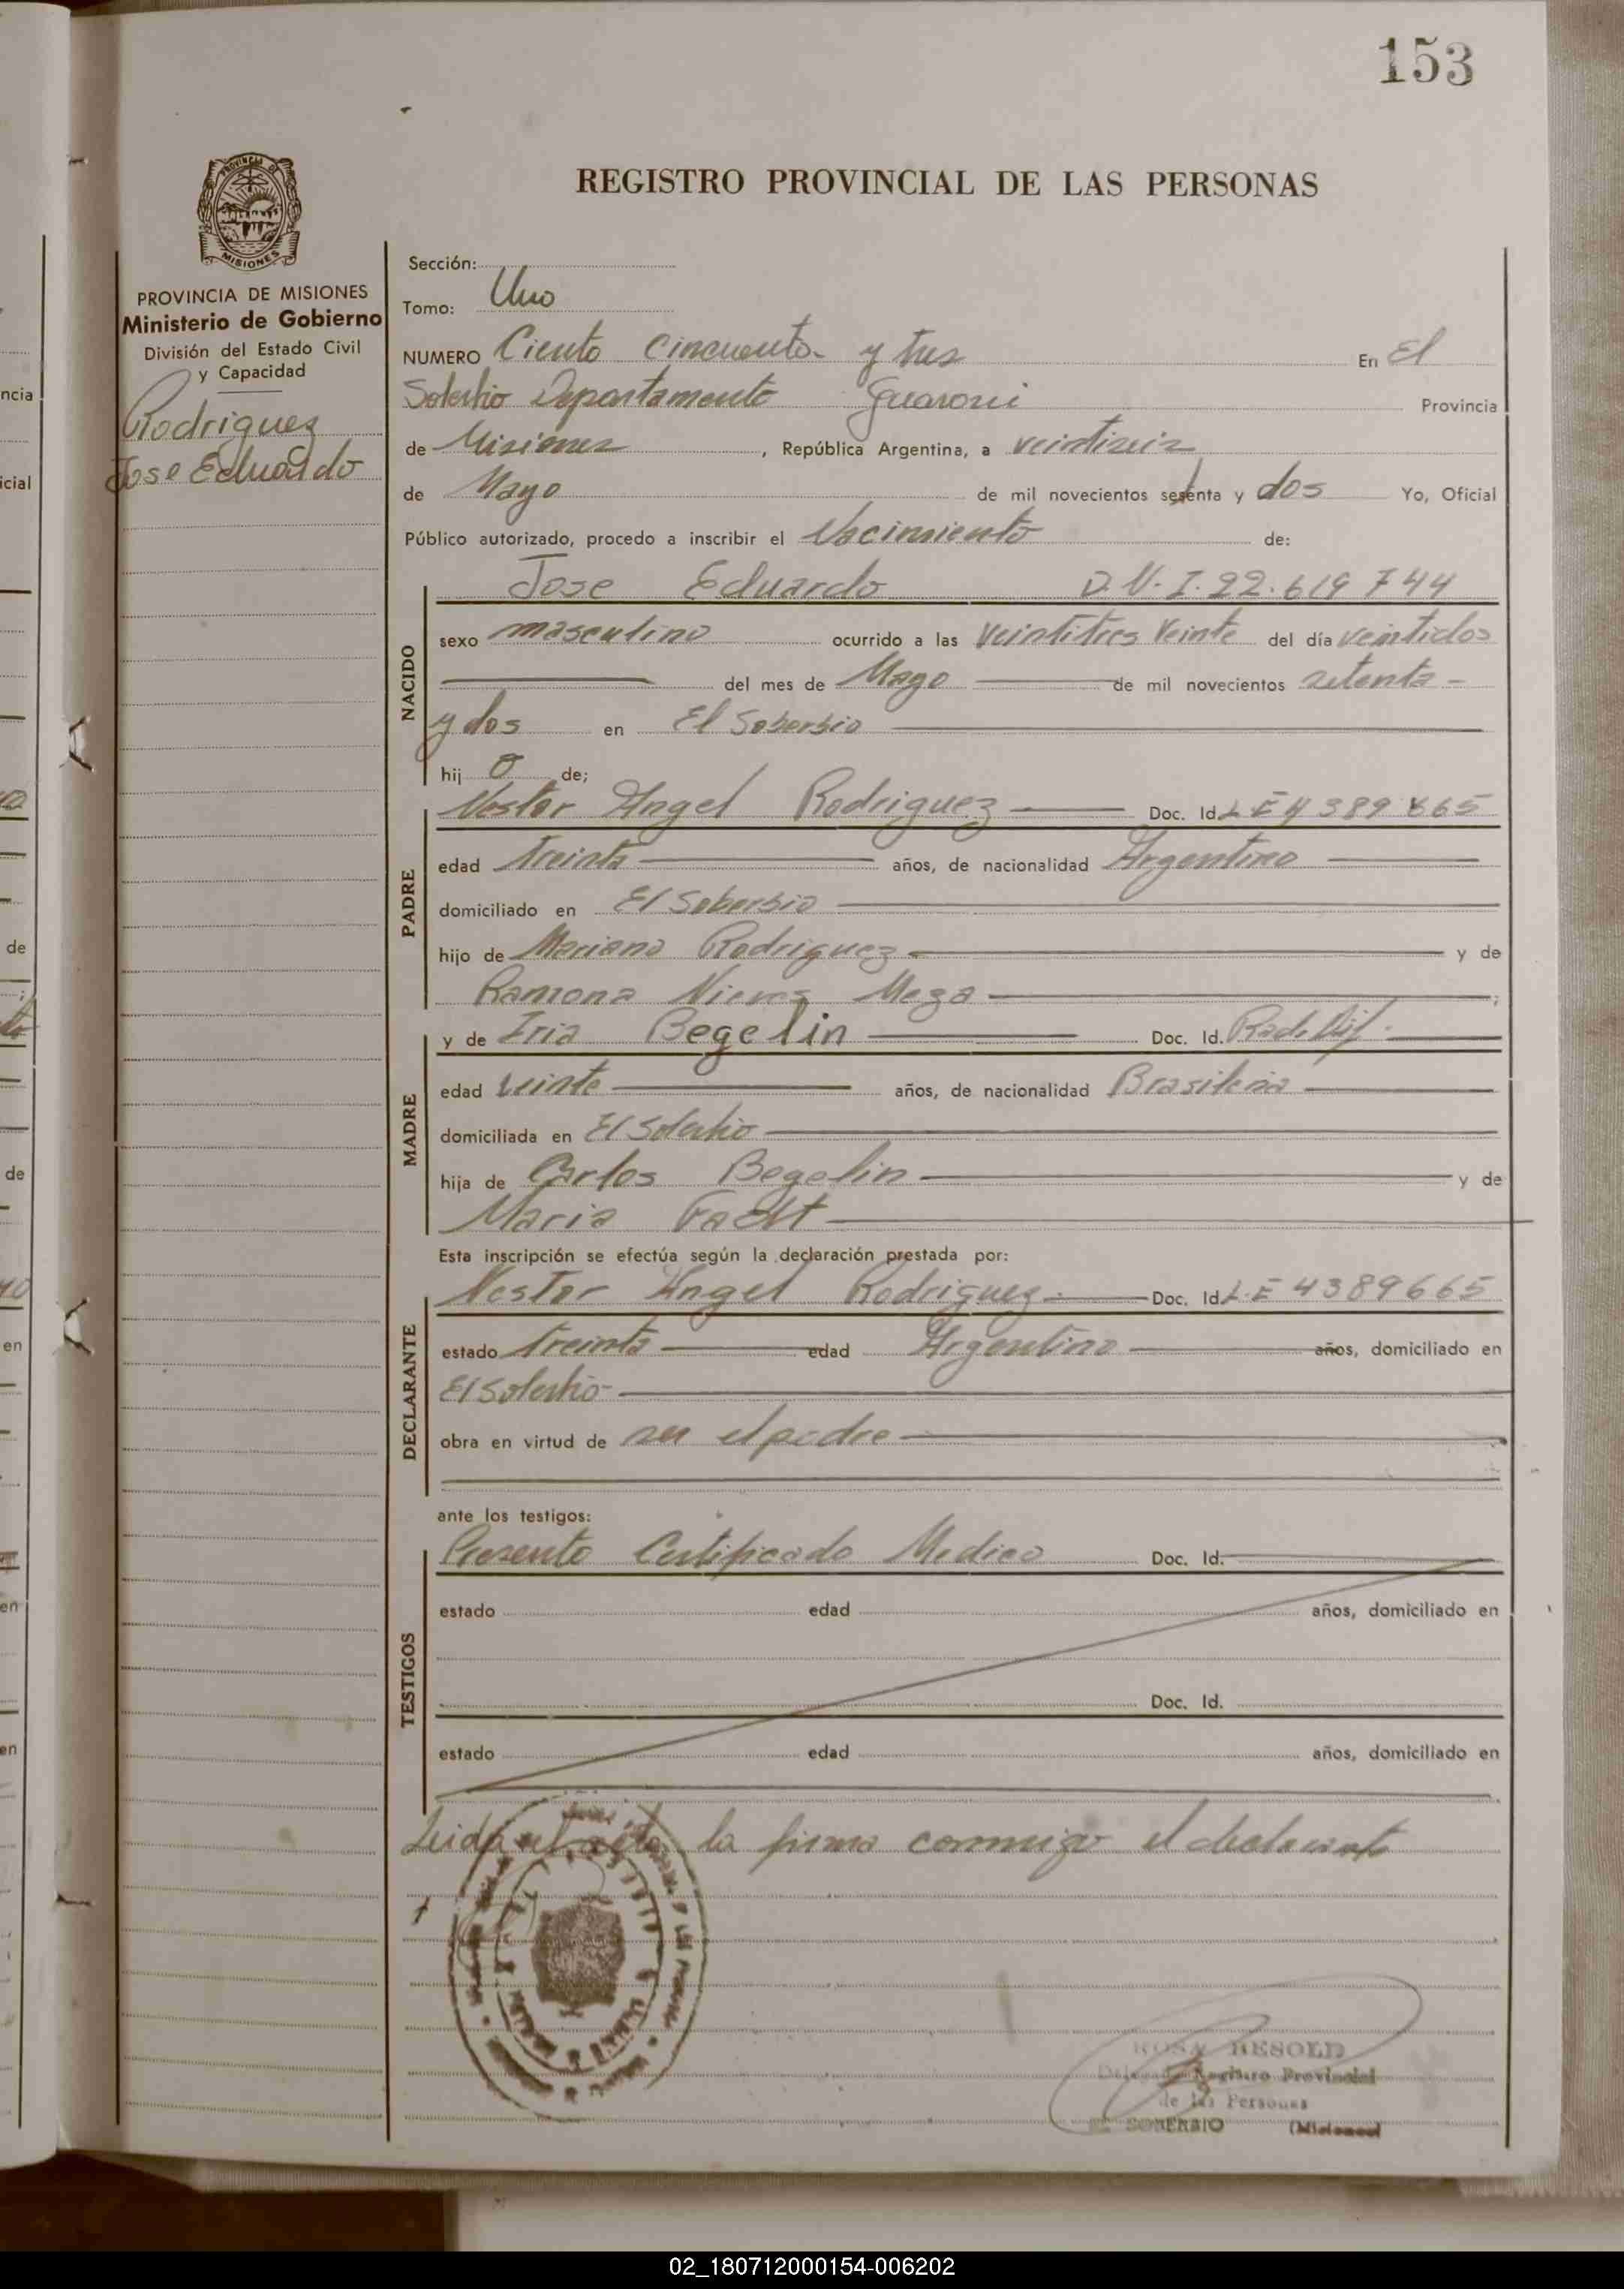 153
PROVINCIA DE MISIONES
REGISTRO PROVINCIAL DE LAS PERSONAS
PROVINCIA DE MISIONES
Ministerio de Gobierno
División del Estado Civil
y Capacidad
Rodriguez
Jose Eduardo
Sección:
Tomo: Uno
NUMERO Ciento Cincuenta y tres En El
Soberbio Departamento Guarani Provincia
de Misiones, República Argentina, a veintiseis
de Mayo de mil novecientos setenta y dos Yo, Oficial
Público autorizado, procedo a inscribir el Nacimiento de:
Jose Eduardo D.N.I. 22.619 744
NACIDO
sexo masculino ocurrido a las veintitres veinte del día veintidos
del mes de Mayo de mil novecientos setenta
y dos en El Soberbio
hij o de;
PADRE
Nestor Angel Rodriguez Doc. Id. L E 4 389 665
edad treinta años, de nacionalidad Argentino
domiciliado en El Soberbio
hijo de Mariano Rodriguez y de
Ramona Nieves Meza;
MADRE
y de Iria Begelin Doc. Id.
edad veinte años, de nacionalidad Brasileña
domiciliada en El Soberbio
hija de Carlos Begelin y de
Maria
Esta inscripción se efectúa según la declaración prestada por:
DECLARANTE
Nestor Angel Rodriguez Doc. Id. L.E 4389665
estado treinta edad Argentino años, domiciliado en
El Soberbio
obra en virtud de ser el padre
ante los testigos:
TESTIGOS
Presento Certificado Medico Doc. Id.
estado edad años, domiciliado en
Doc. Id.
estado edad años, domiciliado en
Leida el acta la firma conmigo el declarante
ROSA RESOLD
Delegada Registro Provincial
de las Personas
EL SOBERBIO (Misiones)
ncia
icial
de
de
en
en
en
02_180712000154-006202